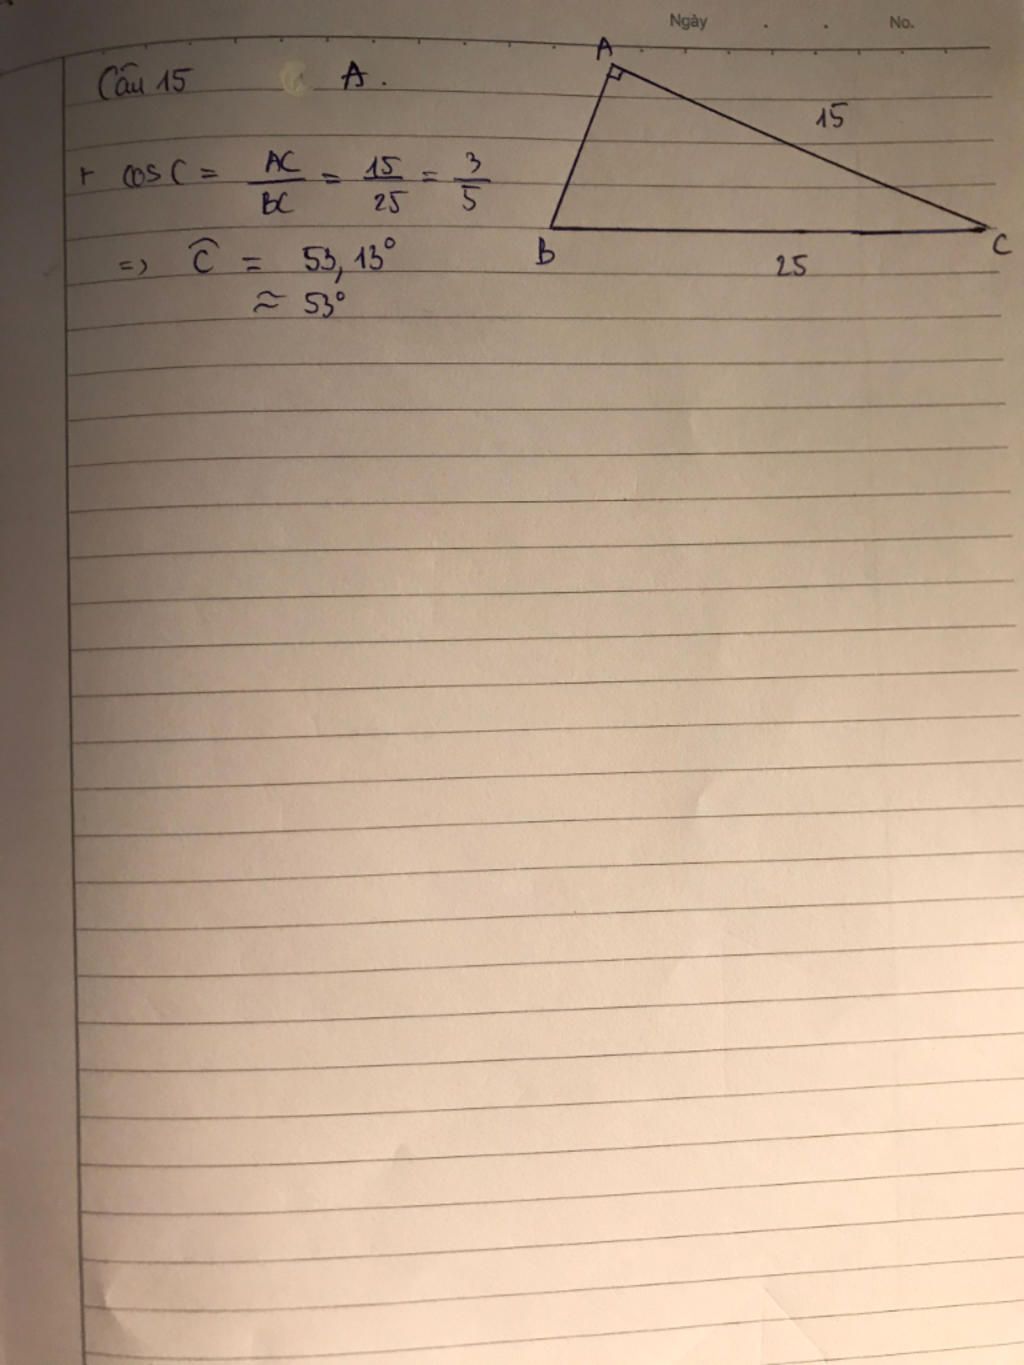 Ngày . . No.
Câu 15 A.
+ cos C = AC/BC = 15/25 = 3/5
=> Ĉ = 53,13°
≈ 53°
A
15
B
C
25